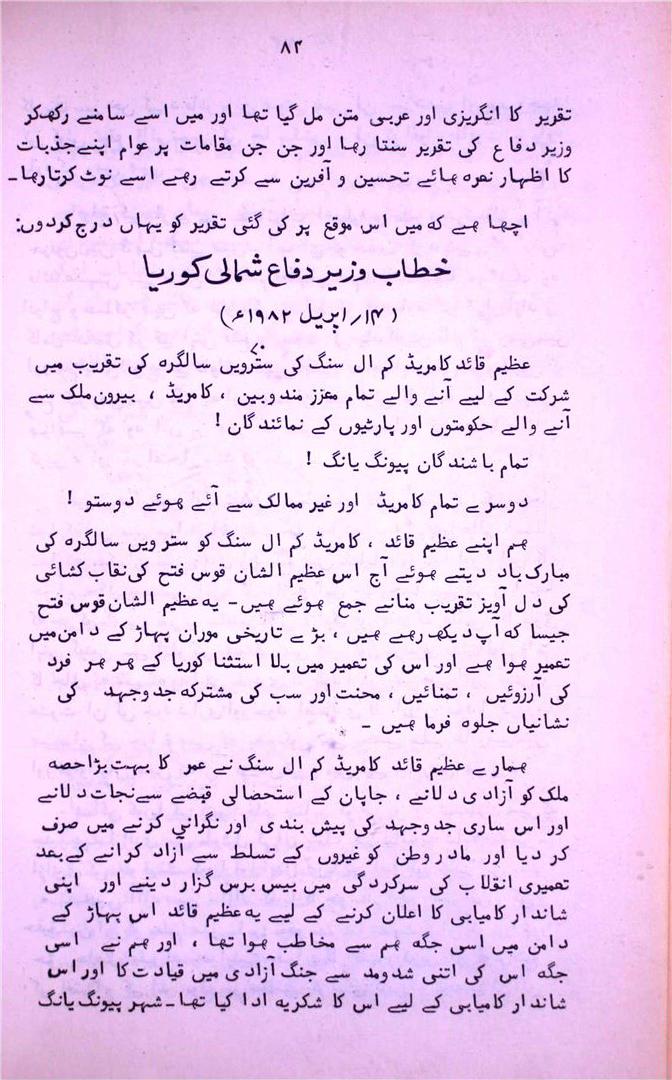 ۸۴
تقریر کا انگریزی اور عربی متن مل گیا تھا اور میں اسے سامنے رکھ کر
وزیر دفاع کی تقریر سنتا رہا اور جن جن مقامات پر عوام اپنے جذبات
کا اظہار نعرہ ہائے تحسین و آفرین سے کرتے رہے اسے نوٹ کرتا رہا۔
اچھا ہے کہ میں اس موقع پر کی گئی تقریر کو یہاں درج کردوں:
خطاب وزیر دفاع شمالی کوریا
(۱۴/اپریل ۱۹۸۲ء)
عظیم قائد کامریڈ کم ال سنگ کی سترویں سالگرہ کی تقریب میں
شرکت کے لیے آنے والے تمام معزز مندوبین ، کامریڈ ، بیرون ملک سے
آنے والے حکومتوں اور پارٹیوں کے نمائندگان !
تمام باشندگان پیونگ یانگ !
دوسرے تمام کامریڈ اور غیر ممالک سے آئے ہوئے دوستو !
ہم اپنے عظیم قائد ، کامریڈ کم ال سنگ کو سترویں سالگرہ کی
مبارک باد دیتے ہوئے آج اس عظیم الشان قوس فتح کی نقاب کشائی
کی دل آویز تقریب منانے جمع ہوئے ہیں۔ یہ عظیم الشان قوس فتح
جیسا کہ آپ دیکھ رہے ہیں ، بڑے تاریخی موران پہاڑ کے دامن میں
تعمیر ہوا ہے اور اس کی تعمیر میں بلا استثنا کوریا کے ہر ہر فرد
کی آرزوئیں ، تمنائیں ، محنت اور سب کی مشترکہ جدوجہد کی
نشانیاں جلوہ فرما ہیں ۔
ہمارے عظیم قائد کامریڈ کم ال سنگ نے عمر کا بہت بڑا حصہ
ملک کو آزادی دلانے ، جاپان کے استحصالی قبضے سے نجات دلانے
اور اس ساری جدوجہد کی پیش بندی اور نگرانی کرنے میں صرف
کر دیا اور مادر وطن کو غیروں کے تسلط سے آزاد کرانے کے بعد
تعمیری انقلاب کی سرکردگی میں بیس برس گزار دینے اور اپنی
شاندار کامیابی کا اعلان کرنے کے لیے یہ عظیم قائد اس پہاڑ کے
دامن میں اسی جگہ ہم سے مخاطب ہوا تھا ، اور ہم نے اسی
جگہ اس کی اتنی شدومد سے جنگ آزادی میں قیادت کا اور اس
شاندار کامیابی کے لیے اس کا شکریہ ادا کیا تھا۔ شہر پیونگ یانگ